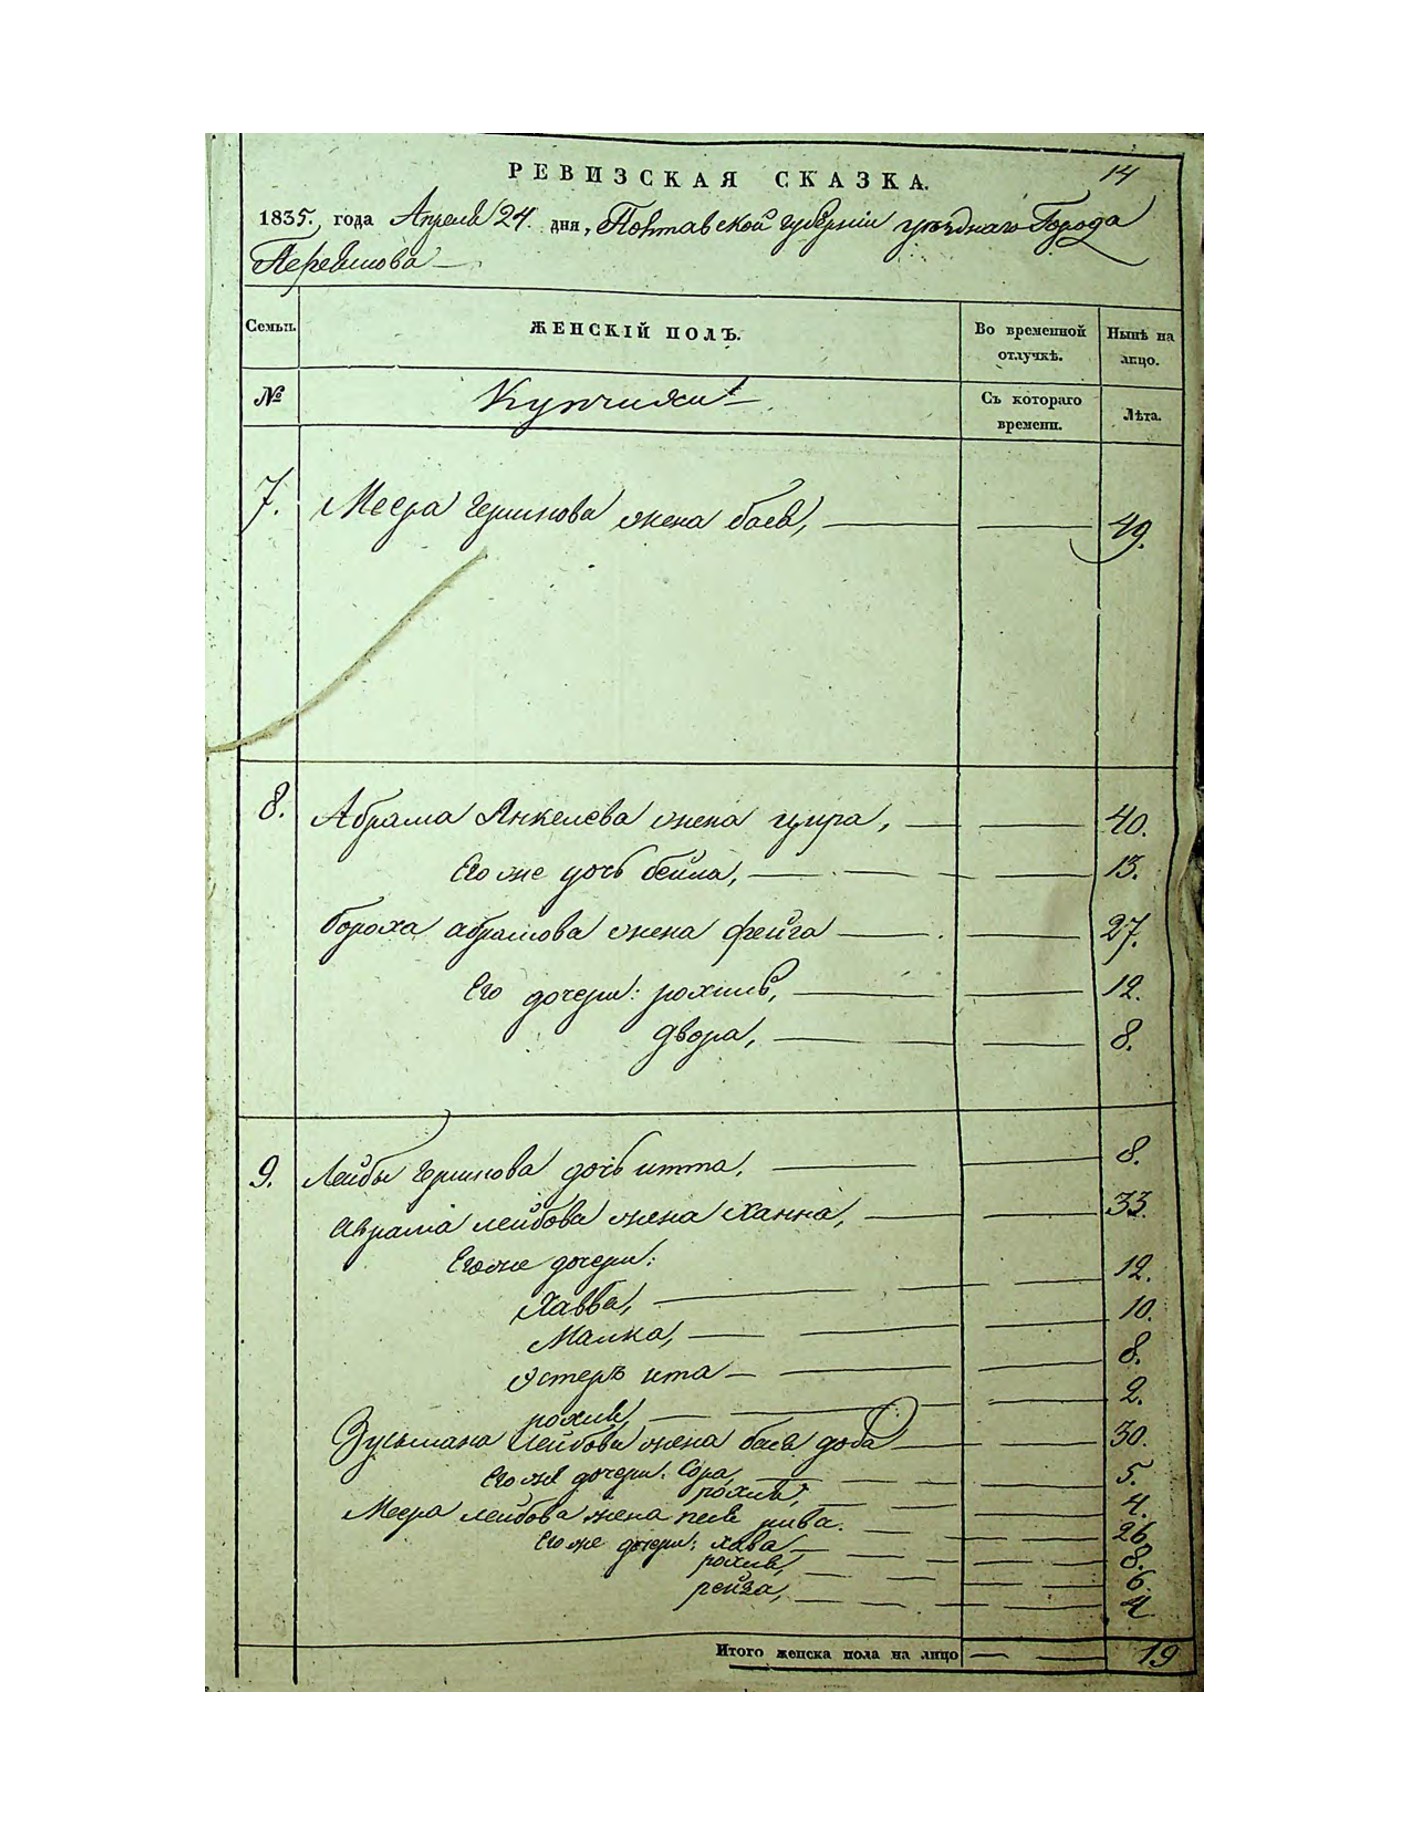 14
РЕВИЗСКАЯ СКАЗКА.
1835. года Апреля 24. дня, Полтавской губернии уѣзднаго Города
Переяслова
Семьи. ЖЕНСКІЙ ПОЛЪ. Во временной отлучкѣ. Нынѣ на лицо.
№ Купчихи Съ котораго времени. Лѣта.
7. Меера Гершкова жена бася, 49.
8. Абрама Янкелева жена цыра, 40.
Его же дочь бейла, 13.
бороха абрамова жена фейга 27.
Его дочери: рохля, 12.
двора, 8.
9. Лейбы Гершкова дочь итта, 8.
Аврама лейбова жена Ханна, 33.
Его же дочери:
Хавва, 12.
Малка, 10.
Эстеръ ита 8.
рохля, 2.
Зусьмана лейбова жена бася доба 30.
Его же дочери: Сора, 5.
рохля, 4.
Меера лейбова жена песя рива. 26.
Его же дочери: хава 8.
рохля, 6.
рейза, 4
Итого женска пола на лицо 19